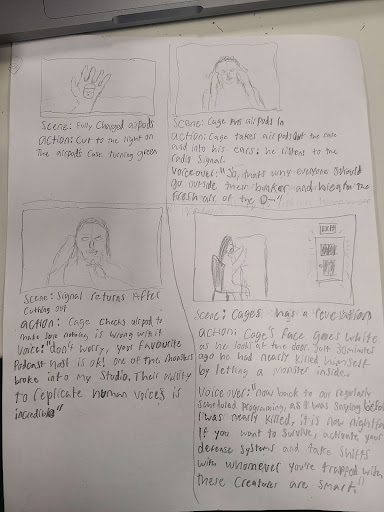 Scene: Fully Charged airpods
action: Cut to the light on
The airpods case turning green
Scene: Cage puts airpods in
action: Cage takes airpods out the case
and into his ears. he listens to the
radio signal.
Voiceover: "So, that's why everyone should
go outside their bunker and breathe the
fresh air of the
Scene: Signal returns After
Cutting out
action: Cage checks airpod to
make sure nothing is wrong with it
Voice: "don't worry, your favourite
Podcast Host is ok! one of the monsters
broke into my Studio. Their ability
to replicate human voices is
incredible"
EXIT
Scene: Cages has a revelation
action: Cage's face goes white
as he looks at the door. Just 30 minutes
ago he had nearly killed himself
by letting a monster inside.
Voiceover: "now back to our regularly
scheduled programming, as I was saying before
I was nearly killed, it is now nightfall
If you want to survive, activate your
defense systems and take shifts
with whomever you're trapped with
these creatures are smart."